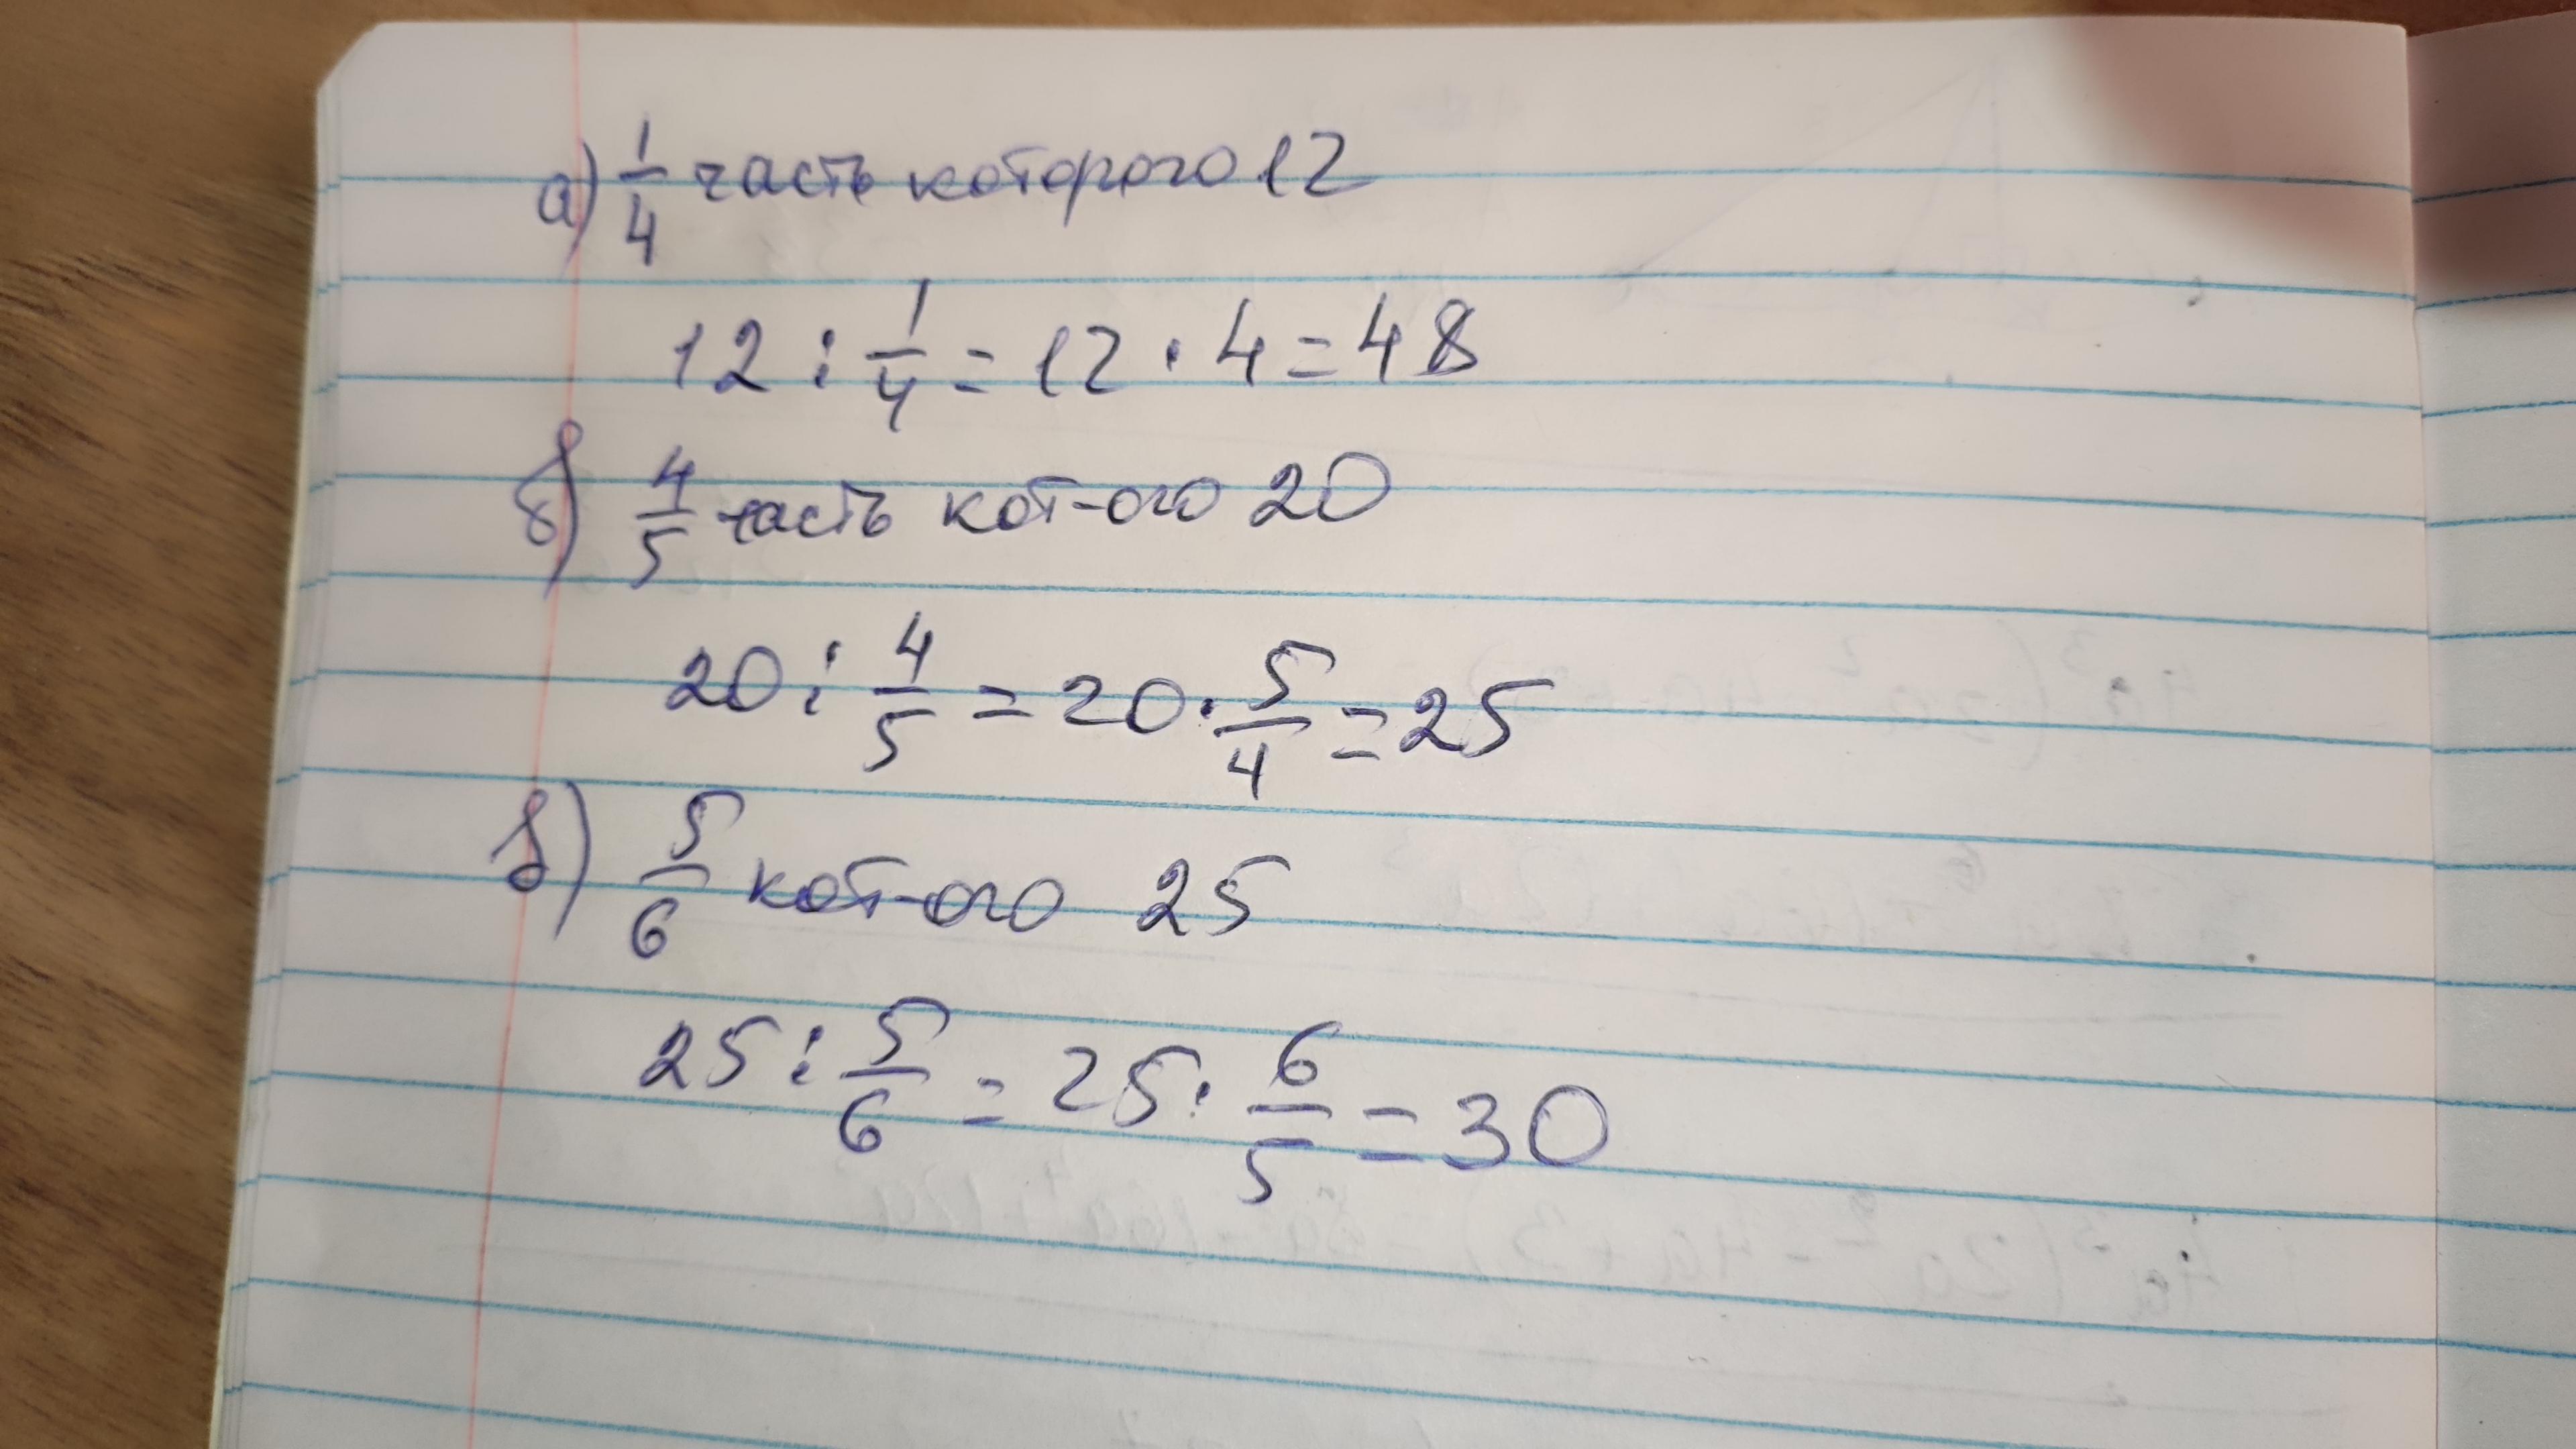 а) 1/4 часть которого 12
12 : 1/4 = 12 · 4 = 48
б) 4/5 часть кот-ого 20
20 : 4/5 = 20 · 5/4 = 25
в) 5/6 кот-ого 25
25 : 5/6 = 25 · 6/5 = 30